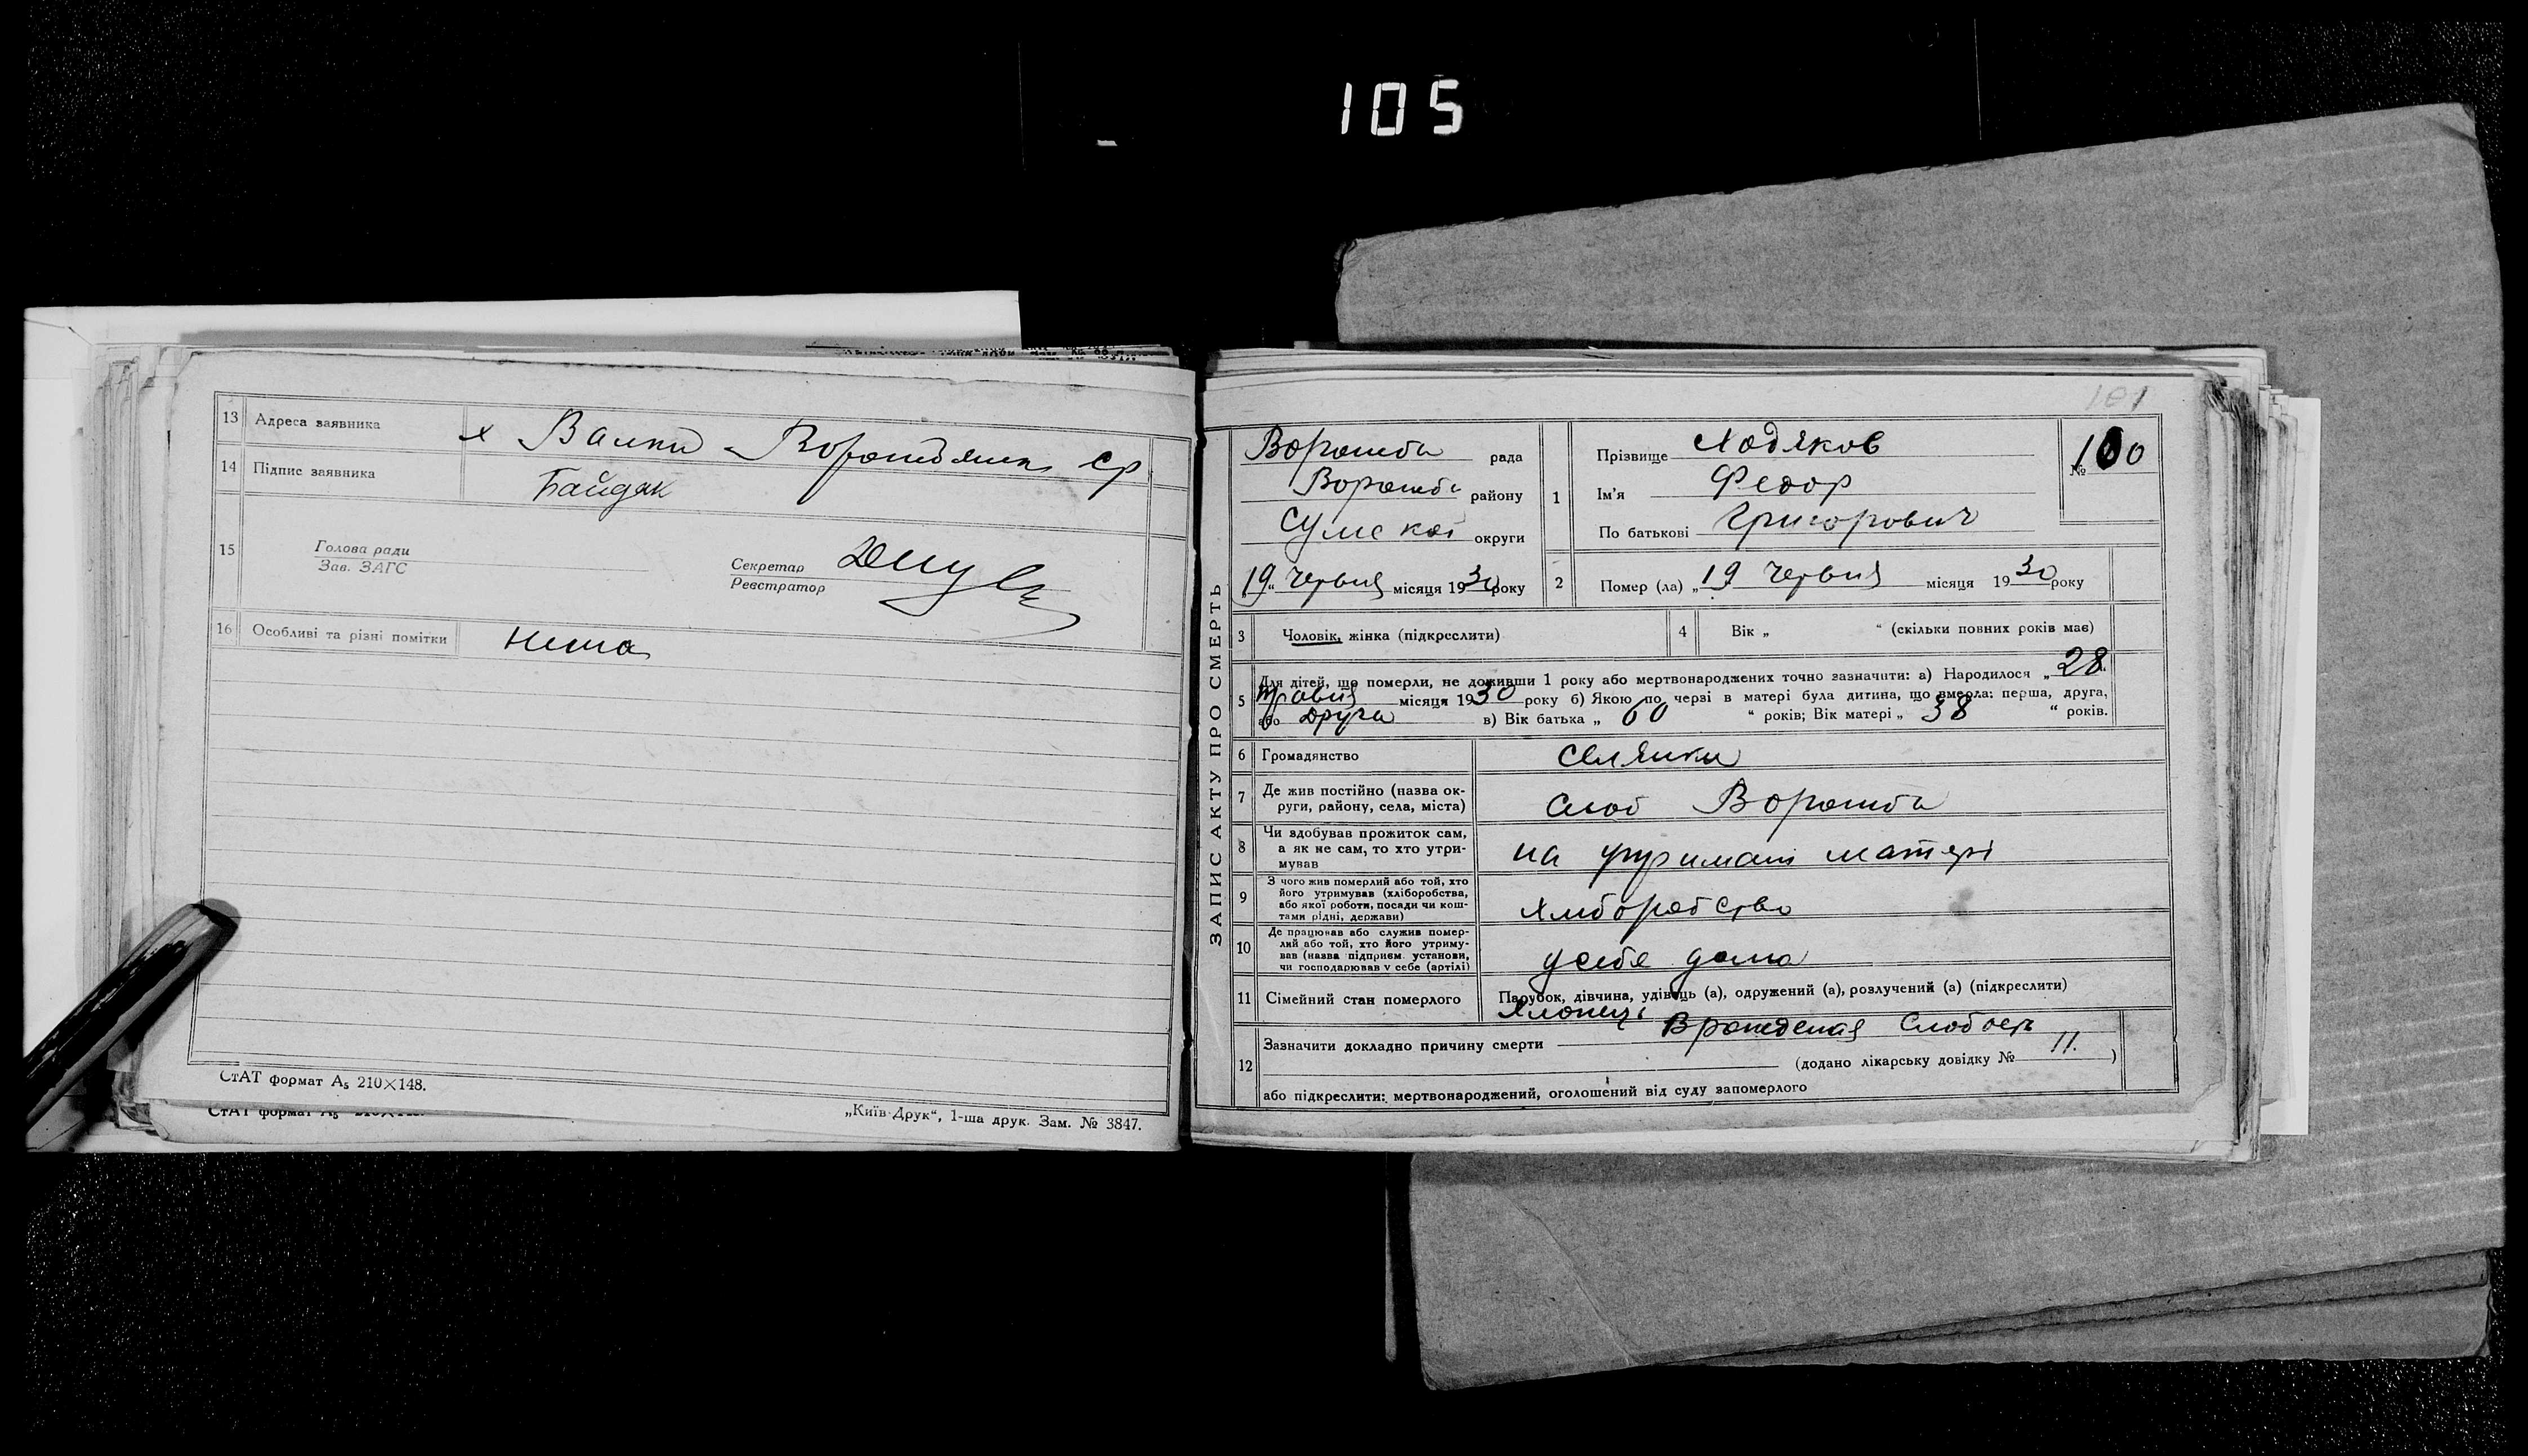 105
13 Адреса заявника х Валки - Ворожбянск ср
14 Підпис заявника Байдак
15 Голова ради
Зав. ЗАГС
Секретар
Реєстратор
16 Особливі та різні помітки Нема
СтАТ формат А₅ 210×148.
СтАТ формат А₅ 210×148.
„Київ-Друк“, 1-ша друк. Зам. № 3847.
101
ЗАПИС АКТУ ПРО СМЕРТЬ
Ворожба рада
Ворожба району
Сумскої округи
„19“ Червня місяця 1930 року
1 Прізвище Ходяков
Ім'я Федор
По батькові Григорович
№ 100
2 Помер (ла) „19 Червня місяця 1930 року
3 Чоловік, жінка (підкреслити)
4 Вік „ “ (скільки повних років має)
5 Для дітей, що померли, не доживши 1 року або мертвонароджених точно зазначити: а) Народилося „28
травня місяця 1930 року б) Якою по черзі в матері була дитина, що вмерла: перша, друга,
або друга в) Вік батька „ 60 “ років; Вік матері „ 38 “ років.
6 Громадянство селянки
7 Де жив постійно (назва округи, району, села, міста) слоб Ворожба
8 Чи здобував прожиток сам,
а як не сам, то хто утри-
мував
на утримані матері
9 З чого жив померлий або той, хто
його утримував (хліборобства,
або якої роботи, посади чи кош-
тами рідні, держави)
Хлиборобство
10 Де працював або служив помер-
лий або той, хто його утриму-
вав (назва підприєм. установи,
чи господарював у себе (артілі)
у себе дома
11 Сімейний стан померлого Парубок, дівчина, удівець (а), одружений (а), розлучений (а) (підкреслити)
Хлопець
12 Зазначити докладно причину смерти Врожденая Слобость
(додано лікарську довідку № 11. )
або підкреслити: мертвонароджений, оголошений від суду запомерлого